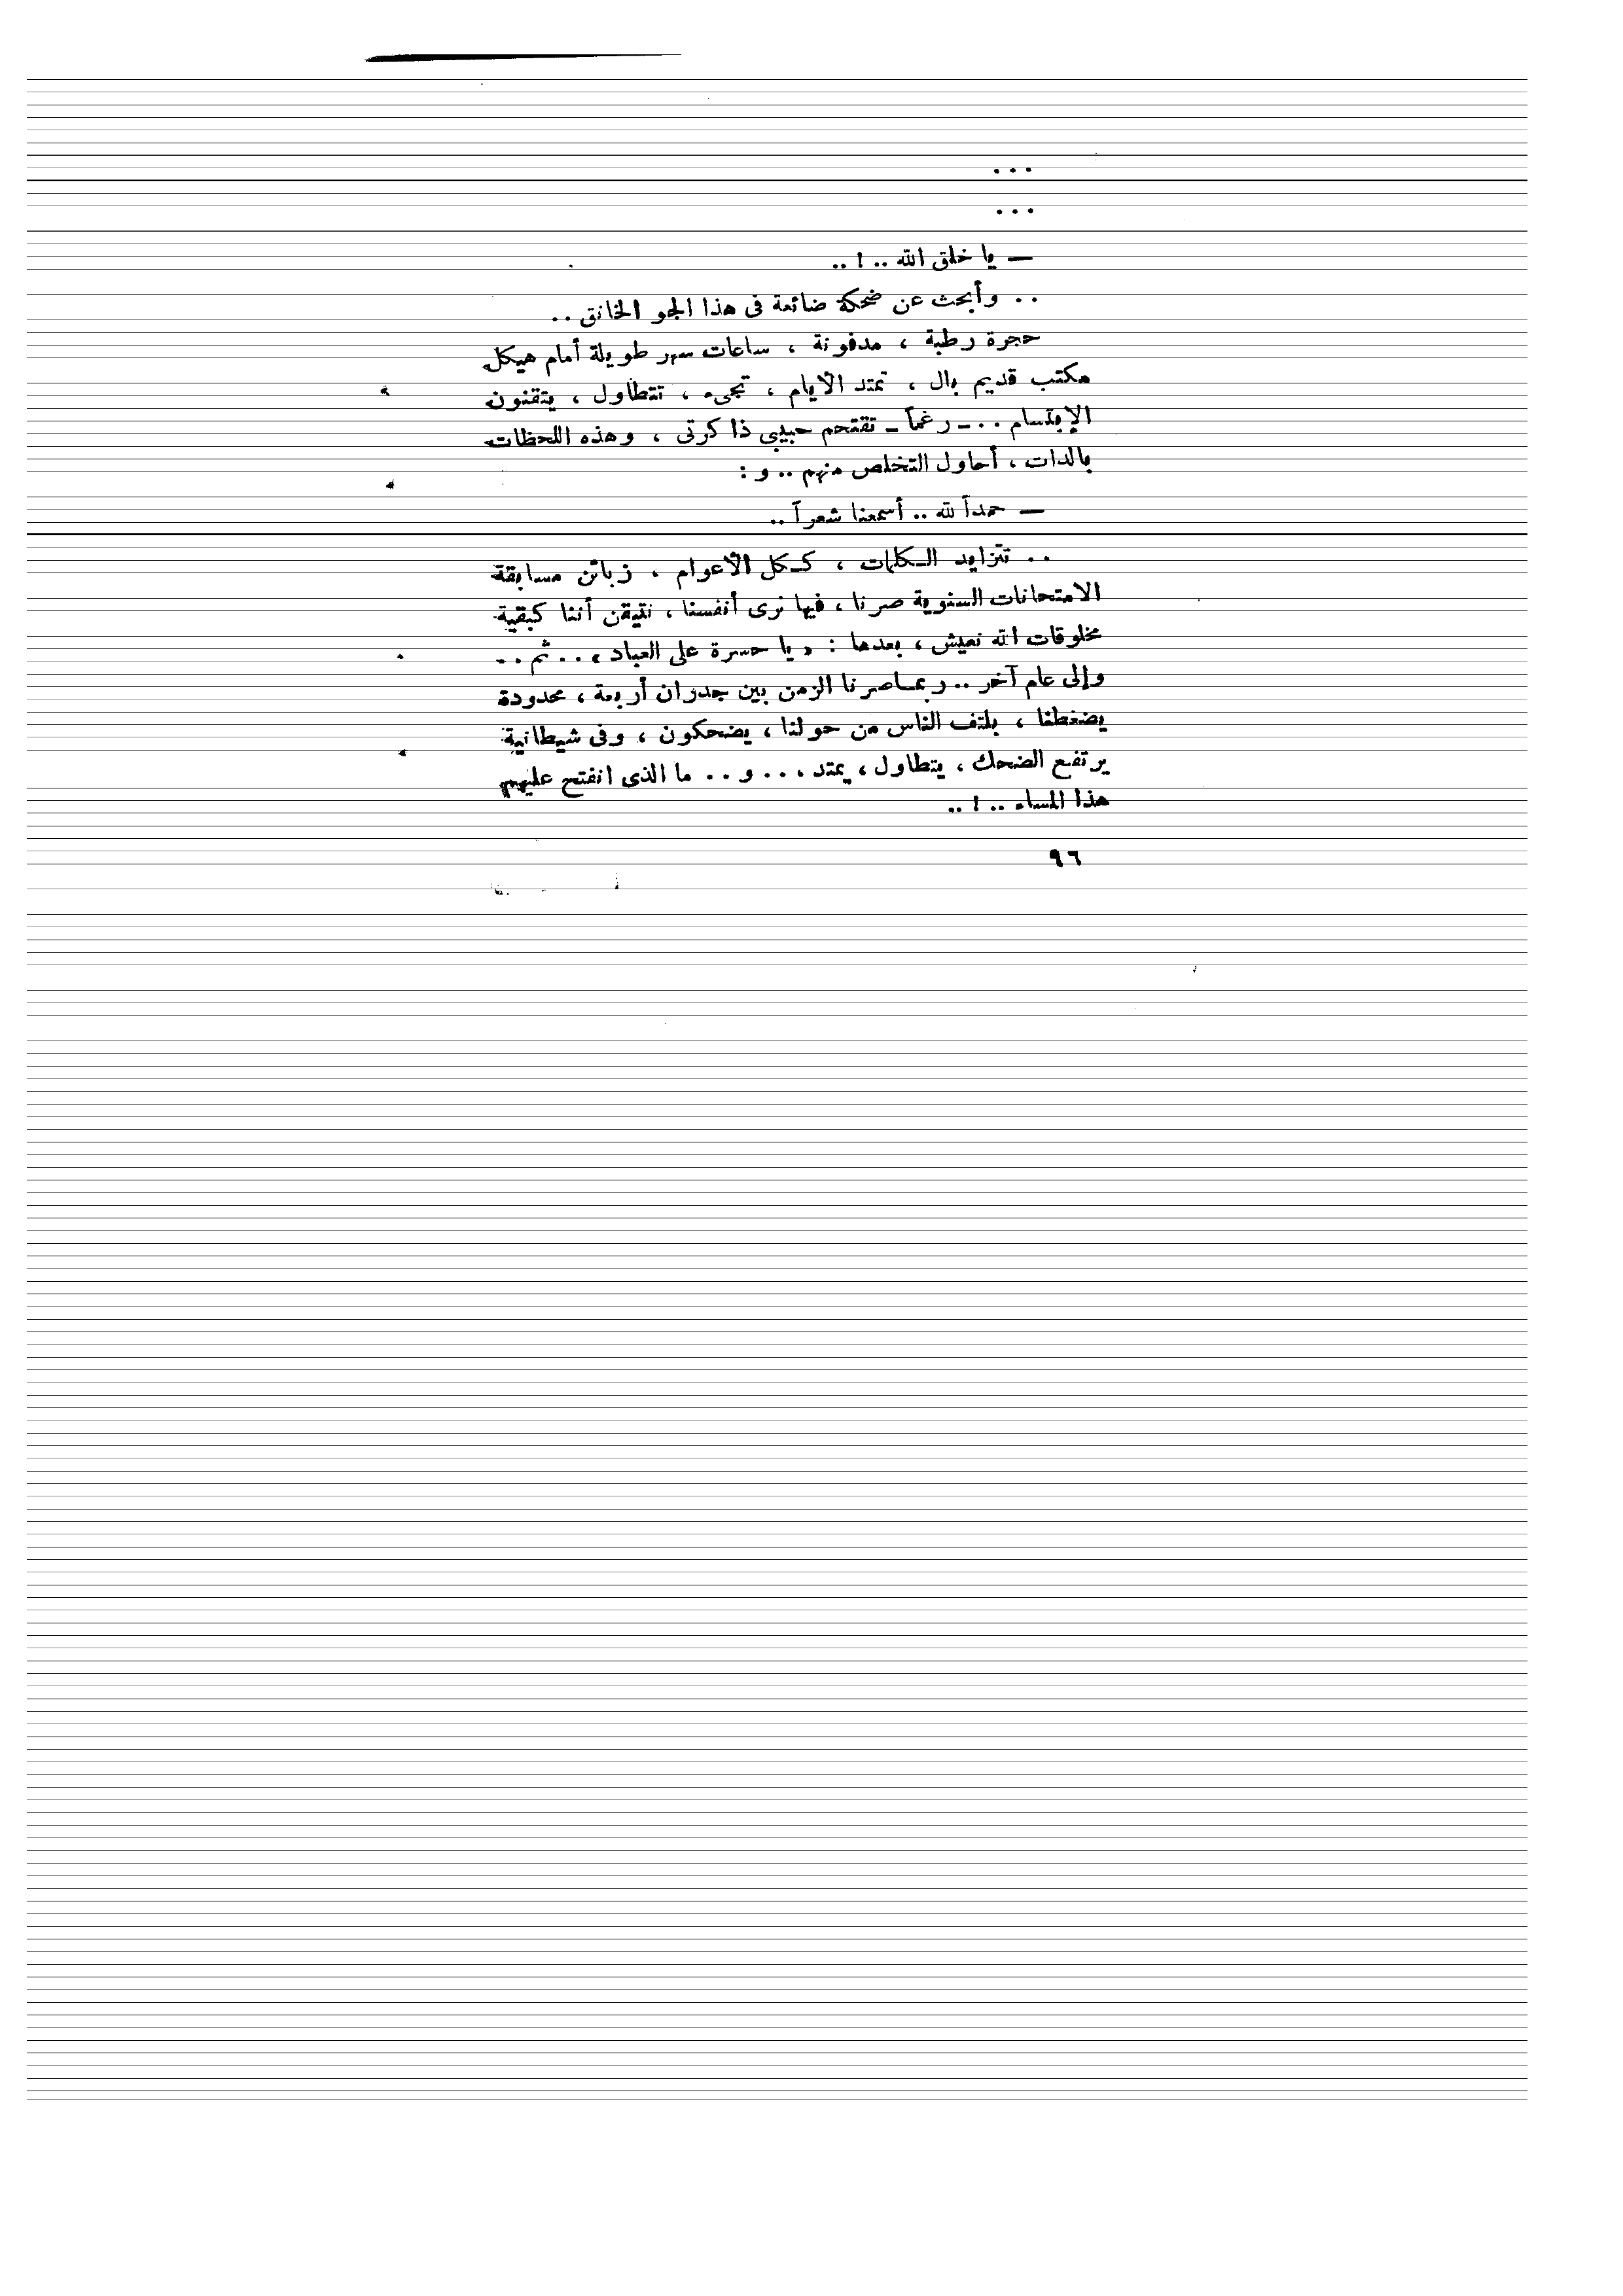 ...
...
— يا خلق الله .. ! ..
.. وأبحث عن ضحكة ضائعة فى هذا الجو الخانق ..
حجرة رطبة ، مدفونة ، ساعات سهر طويلة أمام هيكل
مكتب قديم بال ، تمتد الأيام ، تجىء ، تتطاول ، يتقنون
الإبتسام .. – رغماً – تقتحم حبيبى ذاكرتى ، وهذه اللحظات
بالذات ، أحاول التخلص منهم .. و :
— حمداً لله .. أسمعنا شعراً ..
.. تتزايد الكلمات ، ككل الأعوام ، زبائن مسابقة
الامتحانات السنوية صرنا ، فيها نرى أنفسنا ، نتيقن أننا كبقية
مخلوقات الله نعيش ، بعدها : « يا حسرة على العباد » .. ثم ..
وإلى عام آخر .. ربما صرنا الزمن بين جدران أربعة ، محدودة
يضغطنا ، يلتف الناس من حولنا ، يضحكون ، وفى شيطانية
يرتفع الضحك ، يتطاول ، يمتد ... و .. ما الذى انفتح عليهم
هذا المساء .. ! ..
٩٦